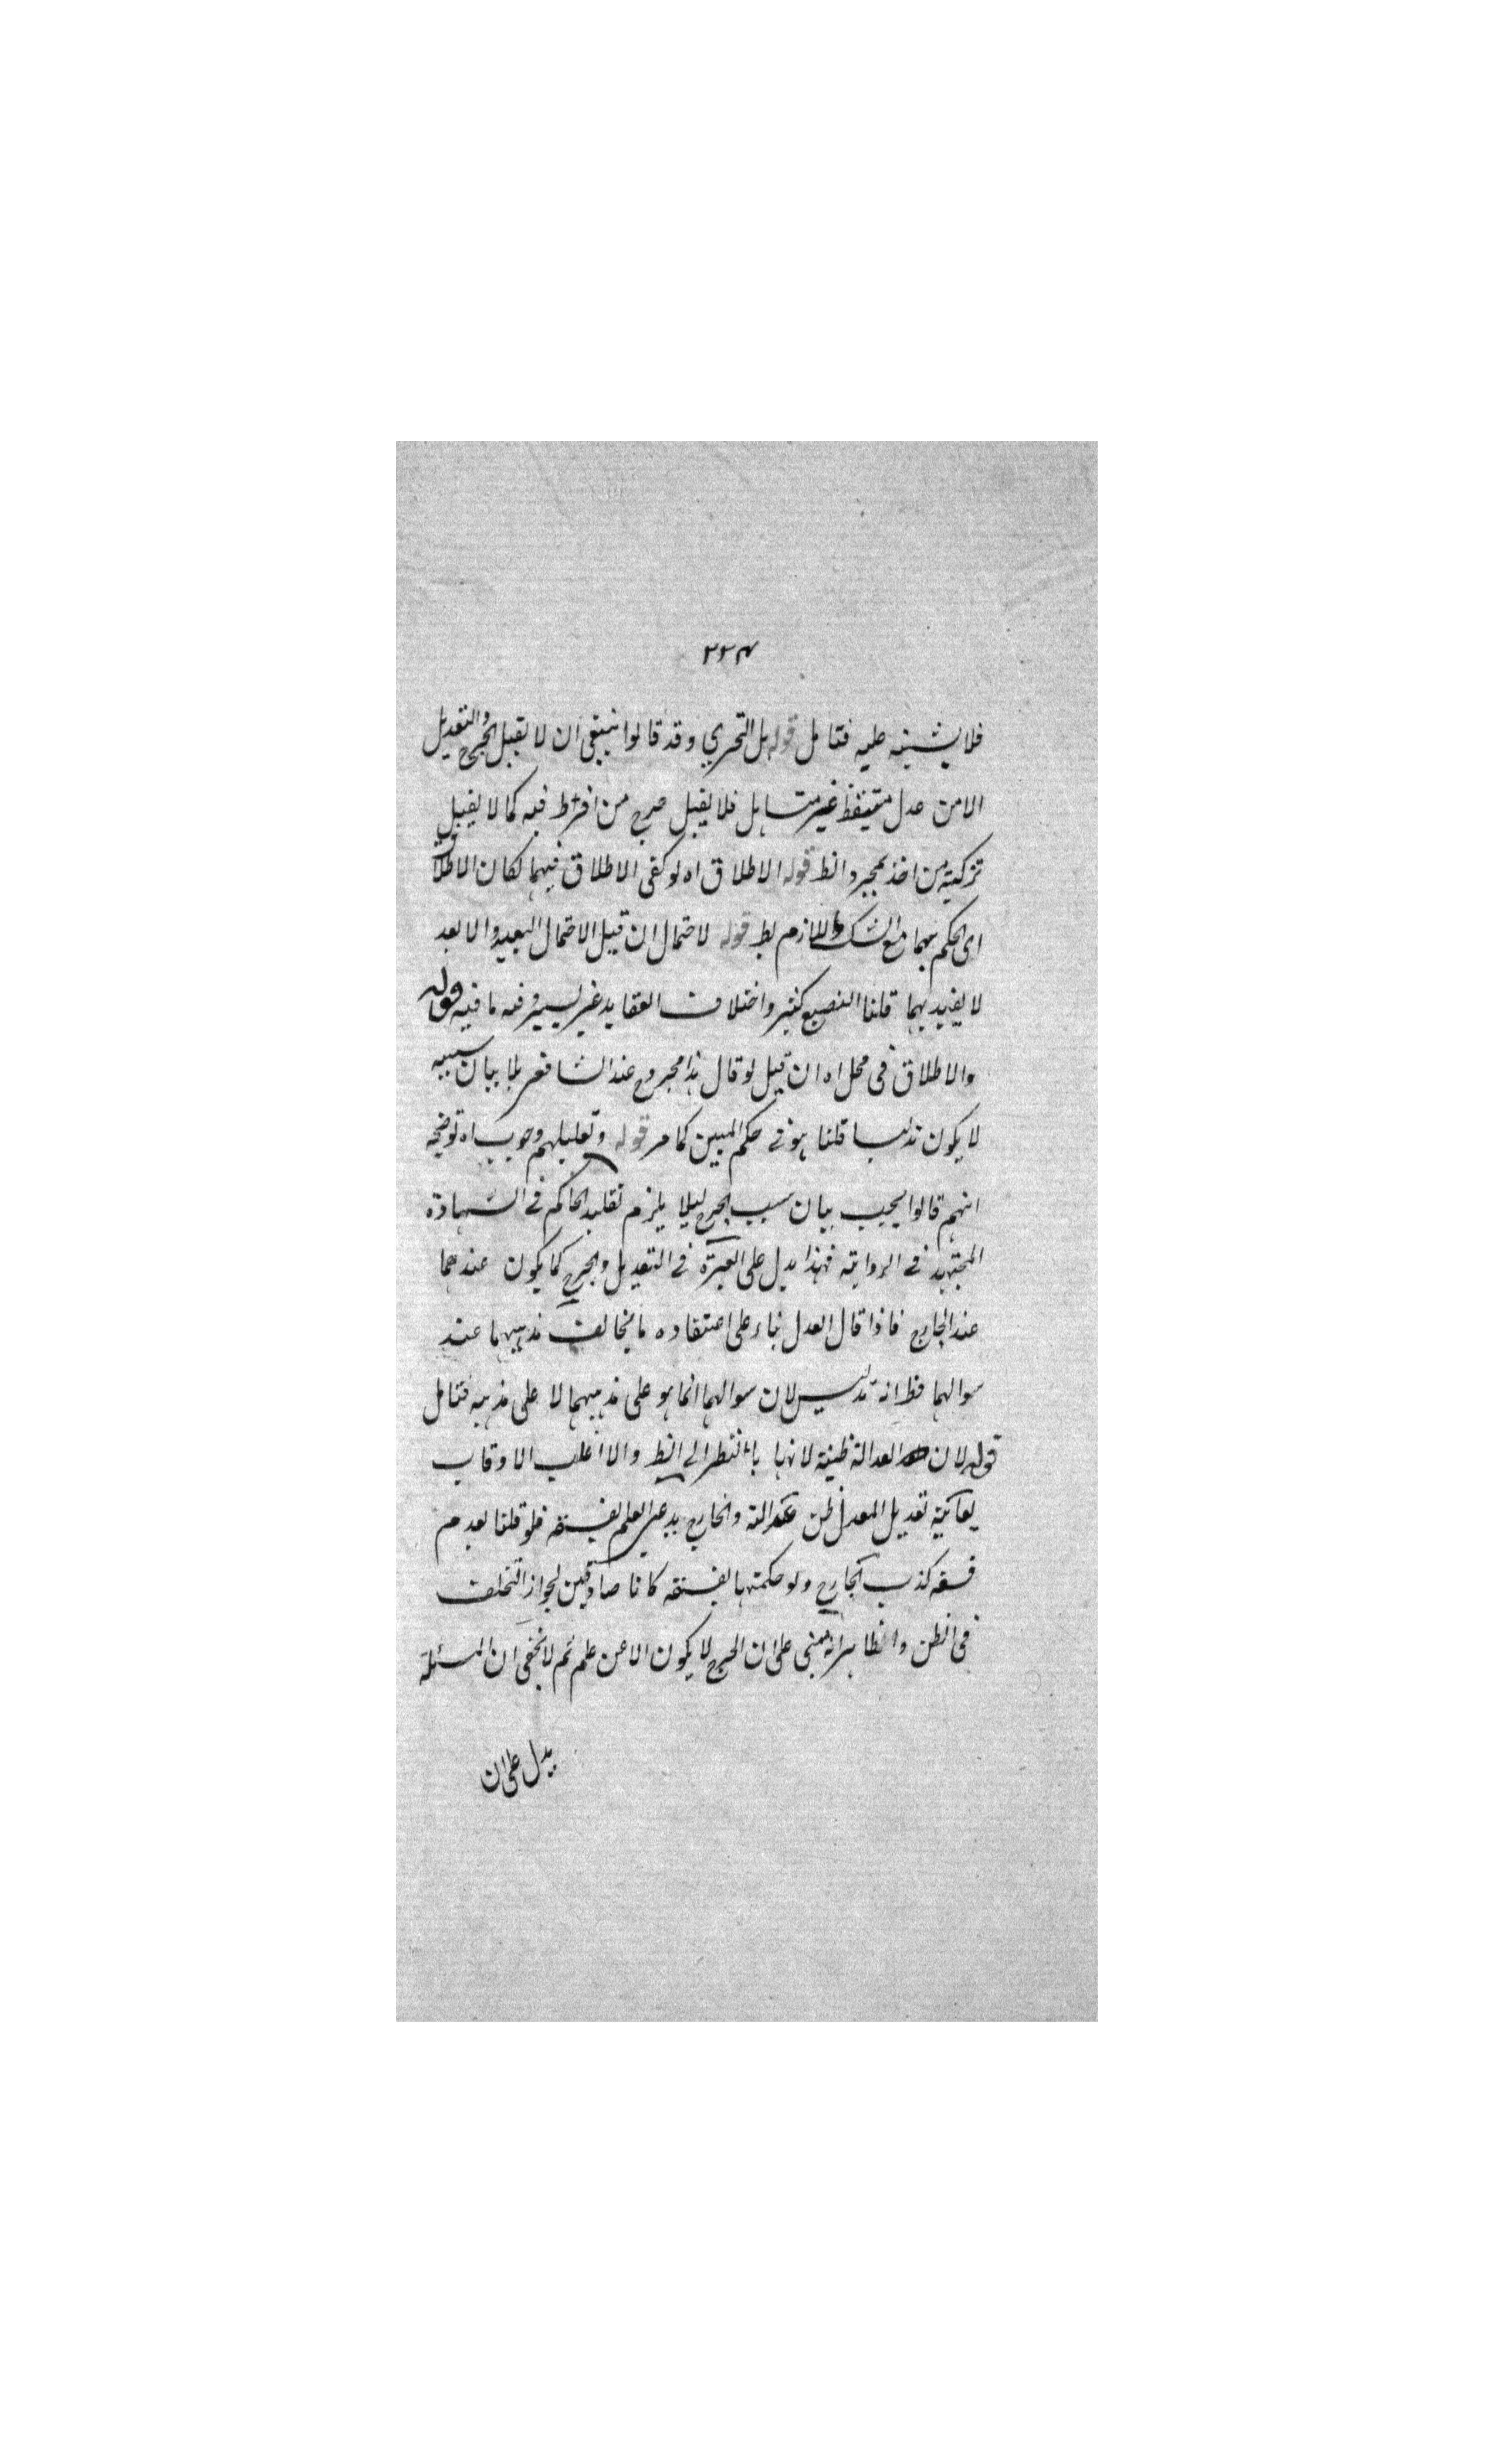 ٢٢٤
فلا يشتبه عليه فتامل قوله بل التحري وقد قالوا ينبغي ان لا يقبل الجرح والتعديل
الا من عدل متيقظ غير متساهل فلا يقبل جرح من افرط فيه كما لا يقبل
تزكية من اخذ بمجرد الظ قوله الاطلاق اه لو كفى الاطلاق فيهما لكان الاطلاق
اى الحكم بهما مع الشك واللازم بط قوله لاحتمال ان قيل الاحتمال البعيد والابعد
لا يفيد بهما قلنا التصنع كثير واختلاف العقايد غير يسير وفيه ما فيه قوله
والاطلاق في محل اه ان قيل لو قال هذا مجروح عند الشافعي بلا بيان سببه
لا يكون تدليسا قلنا هو في حكم المبين كما مر قوله وتعليلهم وجوب اه توضيحه
انهم قالوا يجب بيان سبب الجرح ليلا يلزم تقليد الحاكم في الشهادة
المجتهد في الرواية فهذا يدل على العبرة في التعديل والجرح كما يكون عندهما
عند الجارح فاذا قال العدل بناء على اعتقاده ما يخالف مذهبهما عند
سوالهما فظ انه تدليس لان سوالهما انما هو على مذهبهما لا على مذهبه فتامل
قوله لان العدالة ظنية لانها بالنظر الى الظ والا اغلب الاوقات
تعديل المعدل ظن عدالته والجارح يدعى العلم بفسقه فلو قلنا بعدم
فسقه كذب الجارح ولو حكمتها بفسقه كانا صادقين لجواز التخلف
في الظن والظاهر انه يبنى على ان الجرح لا يكون الا عن علم ثم لا يخفى ان المسئلة
يدل على ان